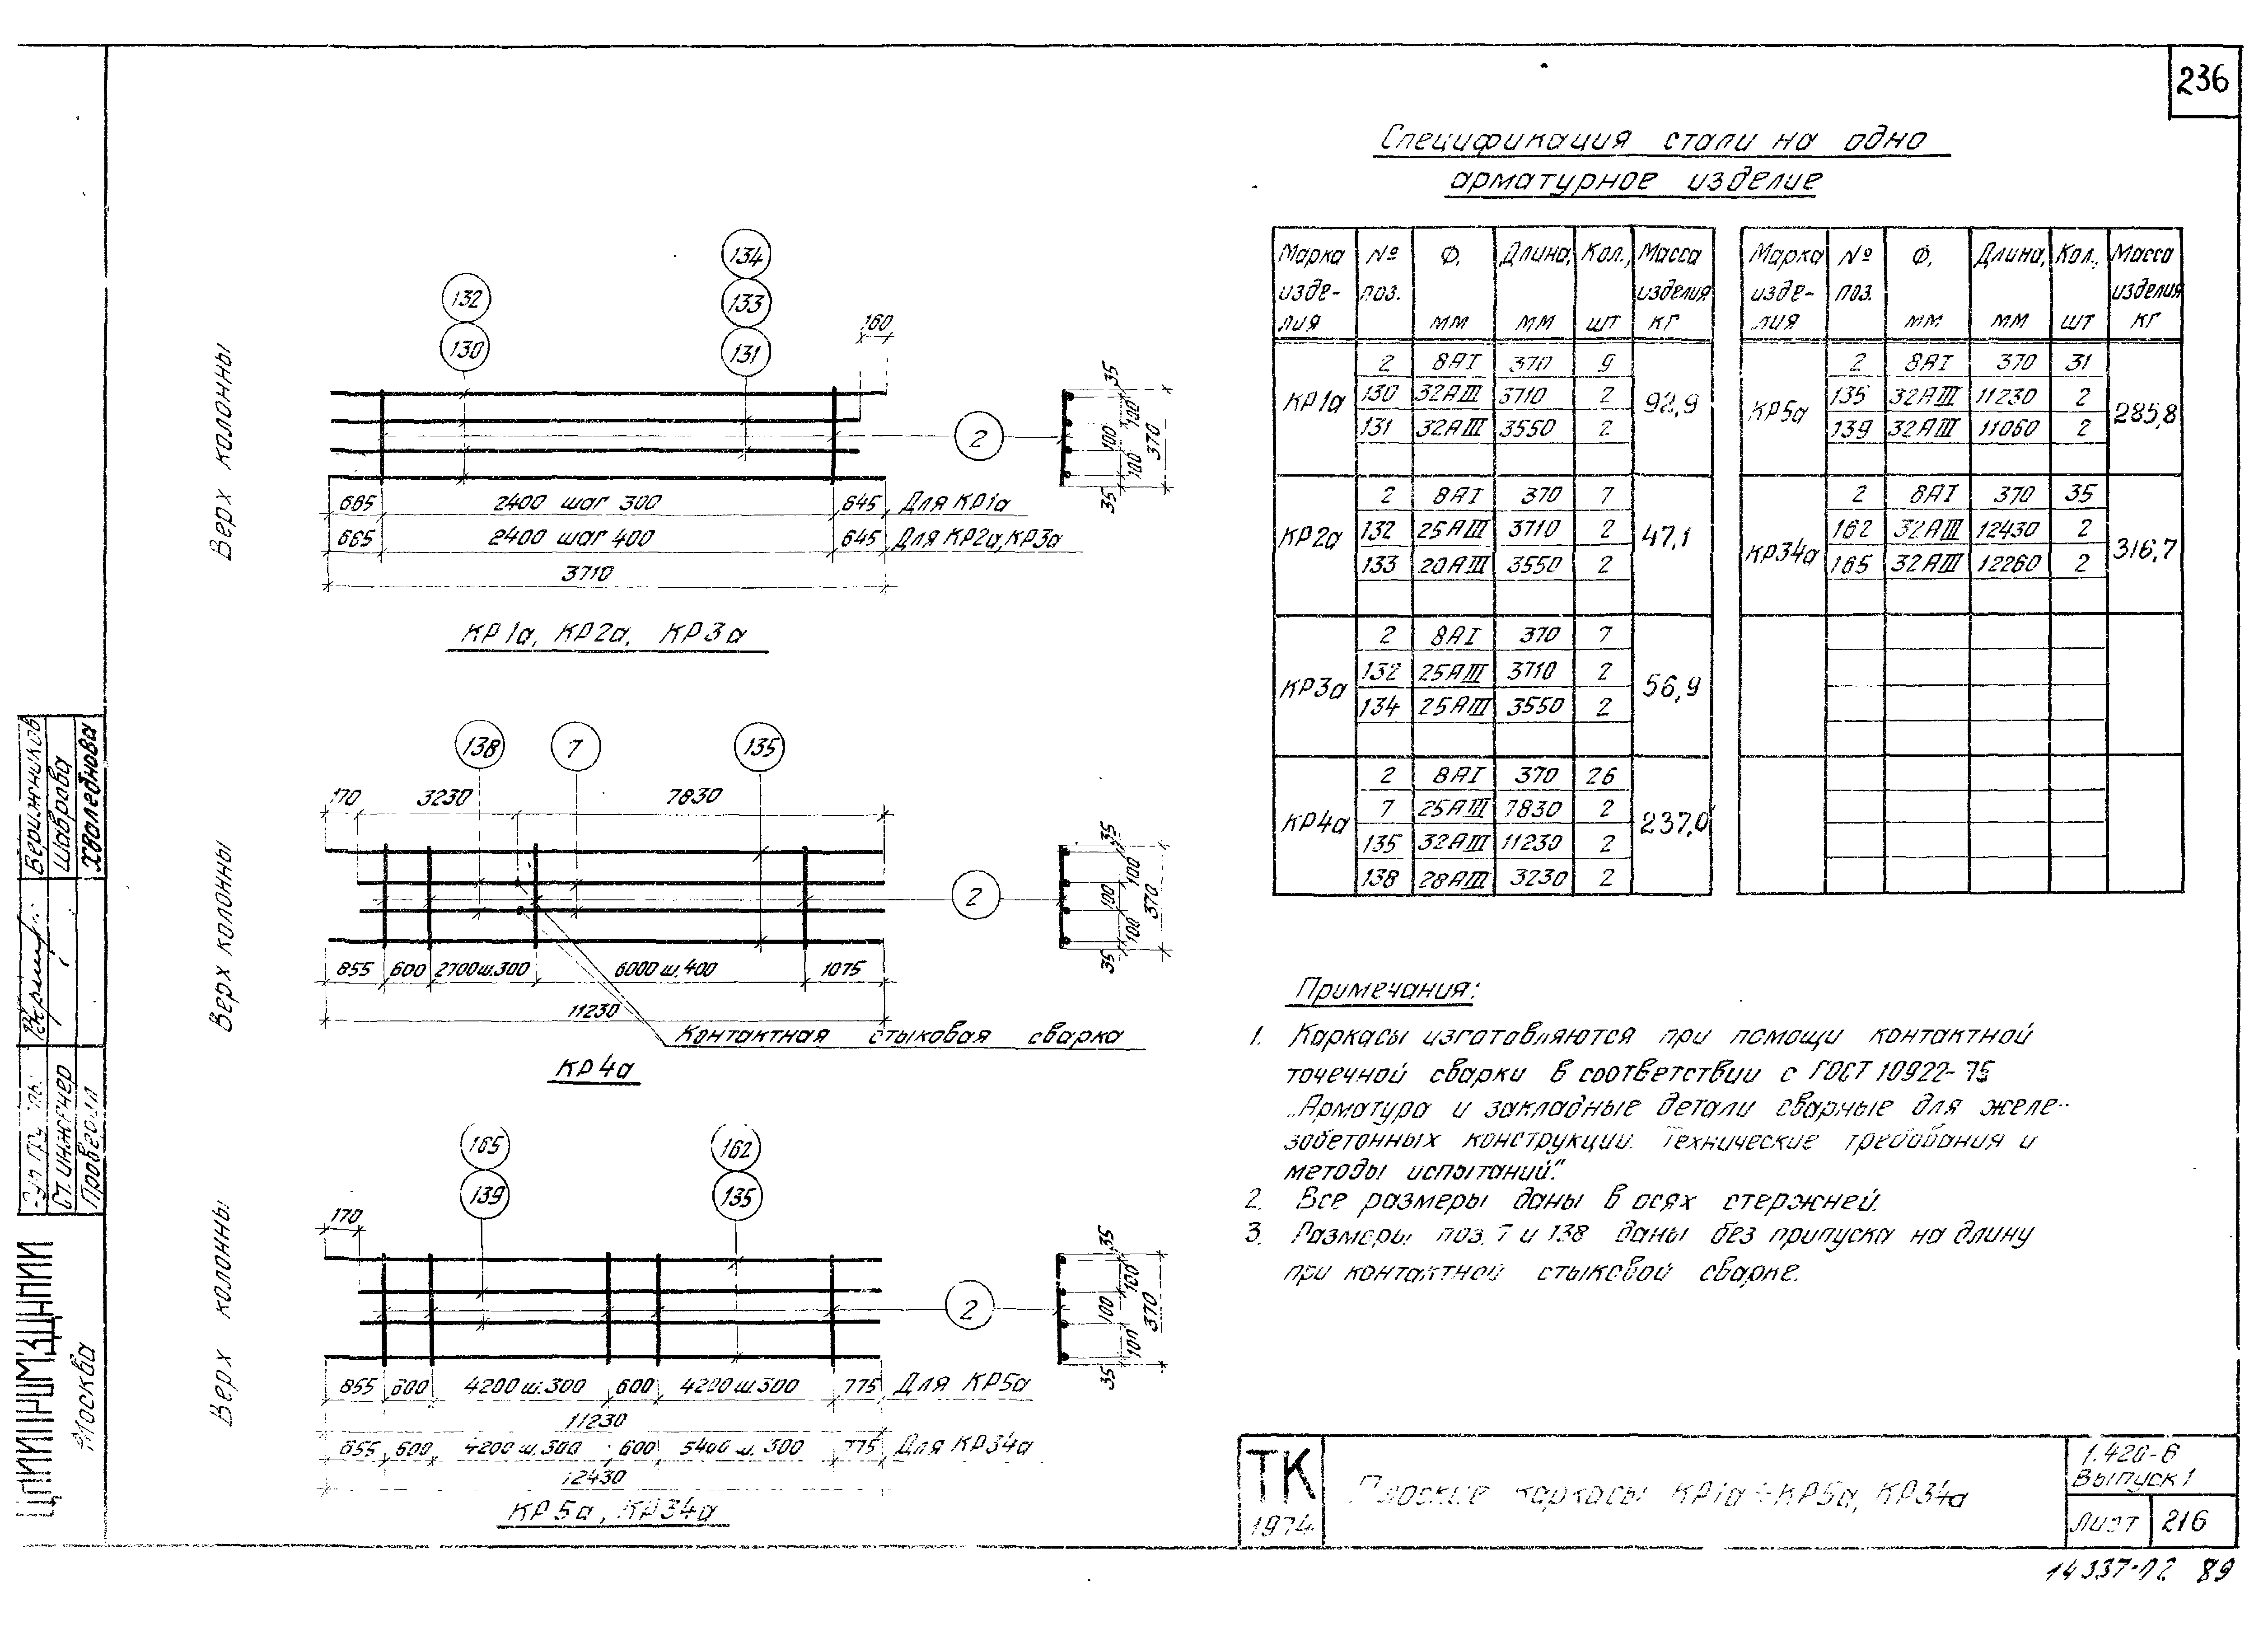 236
Спецификация стали на одно
арматурное изделие
Марка изде- лия | № поз. | Ф, мм | Длина, мм | Кол., шт | Масса изделия кг
КР1а | 2 | 8АI | 370 | 9 | 92,9
130 | 32АIII | 3710 | 2
131 | 32АIII | 3550 | 2
КР2а | 2 | 8АI | 370 | 7 | 47,1
132 | 25АIII | 3710 | 2
133 | 20АIII | 3550 | 2
КР3а | 2 | 8АI | 370 | 7 | 56,9
132 | 25АIII | 3710 | 2
134 | 25АIII | 3550 | 2
КР4а | 2 | 8АI | 370 | 26 | 237,0
7 | 25АIII | 7830 | 2
135 | 32АIII | 11230 | 2
138 | 28АIII | 3230 | 2
Марка изде- лия | № поз. | Ф, мм | Длина, мм | Кол., шт | Масса изделия кг
КР5а | 2 | 8АI | 370 | 31 | 285,8
135 | 32АIII | 11230 | 2
139 | 32АIII | 11060 | 2
КР34а | 2 | 8АI | 370 | 35 | 316,7
162 | 32АIII | 12430 | 2
165 | 32АIII | 12260 | 2
Верх колонны
132
130
134
133
131
160
2
35
100
100
100
35
370
665 2400 шаг 300 645 Для КР1а
665 2400 шаг 400 645 Для КР2а, КР3а
3710
КР1а, КР2а, КР3а
Верх колонны
138
7
135
170 3230 7830
2
35
100
100
100
35
370
855 600 2700 ш.300 6000 ш.400 1075
11230
Контактная стыковая сварка
КР4а
Верх колонны
165
139
162
135
170
2
35
100
100
100
35
370
855 600 4200 ш.300 600 4200 ш.300 775 Для КР5а
11230
855 600 4200 ш.300 600 5400 ш. 300 775 Для КР34а
12430
КР5а, КР34а
Примечания:
1. Каркасы изготавляются при помощи контактной
точечной сварки в соответствии с ГОСТ 10922-75
„Арматура и закладные детали сварные для желе-
зобетонных конструкции. Технические требования и
методы испытаний."
2. Все размеры даны в осях стержней.
3. Размеры поз. 7 и 138 даны без припуска на длину
при контактной стыковой сварке.
ТК
1974
Плоские каркасы КР1а÷КР5а, КР34а
1.420-6
Выпуск 1
Лист 216
14337-02 89
Верижников
Шаврова
Хваледнова
Ст. инженер
Проверил
Москва